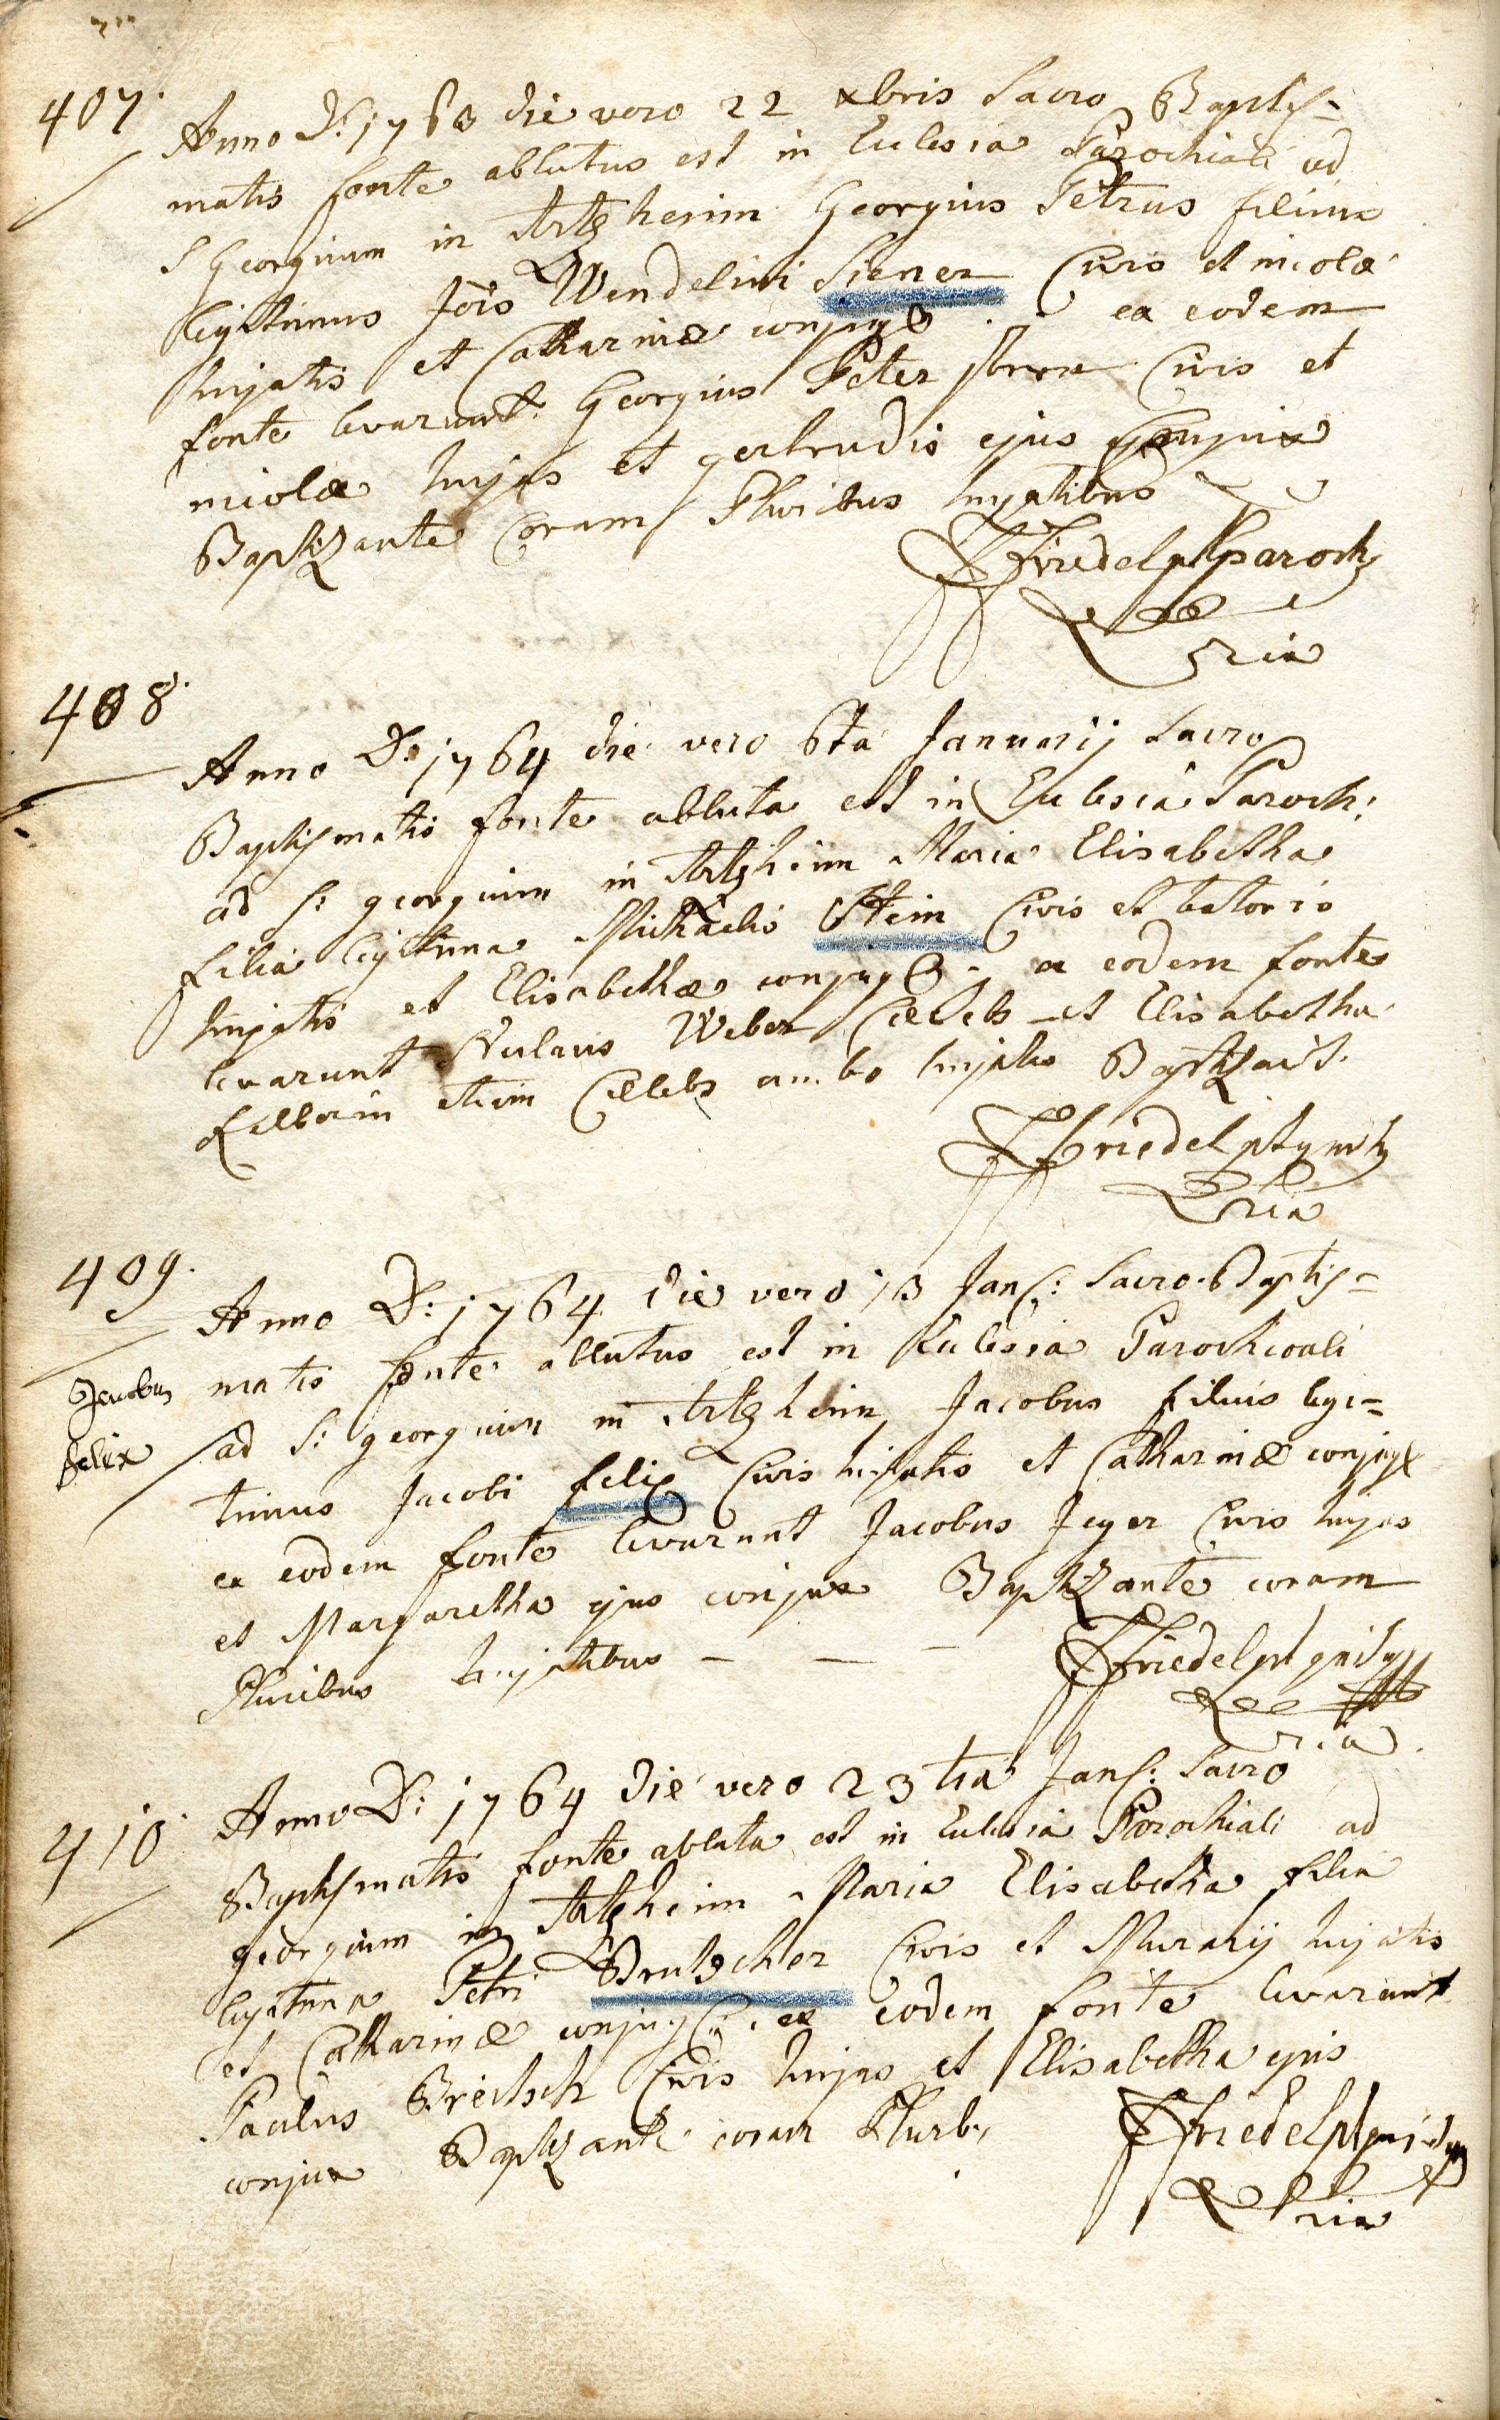 407.
Anno D: 1763 die vero 22 xbris Sacro Baptis=
matis fonte ablutus est in Eclesia Parochiali ad
S Georgium in Artzheim Georgius Petrus filius
legitimus Jois Wendelini Siener Civis et incolæ
hujatis et Catharinæ conjug ex eodem
fonte levarunt Georgius Peter Civis et
incolæ hujas et gertrudis ejus Conjux
Baptizante Coram Pluribus hujatibus
Friedel p paroch
408.
Anno D: 1764 die vero 6ta Januarij Sacro
Baptismatis fonte abluta est in Eclesia Paroch:
ad S: georgium in Artzheim Maria Elisabetha
filia legitima Michaelis Stein Civis et
hujatis et Elisabethæ conjug ex eodem fonte
levarunt Weber Cælebs et Elisabetha
etiam Cælebs ambo hujates
Friedel
ria
409.
Anno D: 1764 die vero 13 Jan: Sacro Baptis=
Jacobus matis fonte ablutus est in Eclesia Parochioali
felix ad S: georgium in Artzheim Jacobus filius legi=
timus Jacobi felix Civis hujatis et Catharinæ conjug
ex eodem fonte levarunt Jacobus Jeger Civis hujas
et Margaretha ejus conjux Baptizante coram
Pluribus hujatibus — — —
Friedel
ria
410.
Anno D: 1764 die vero 23 tia Jan: Sacro
Baptismatis fonte abluta est in Eclesia Parochiali ad
georgium in Artzheim Maria Elisabetha filia
legitima Petri Brutscher Civis et Murarij hujatis
et Catharinæ conjug ex eodem fonte levarunt
Paulus Breitsch Civis hujas et Elisabetha ejus
conjux Baptizante coram Plurb:
Friedel
ria